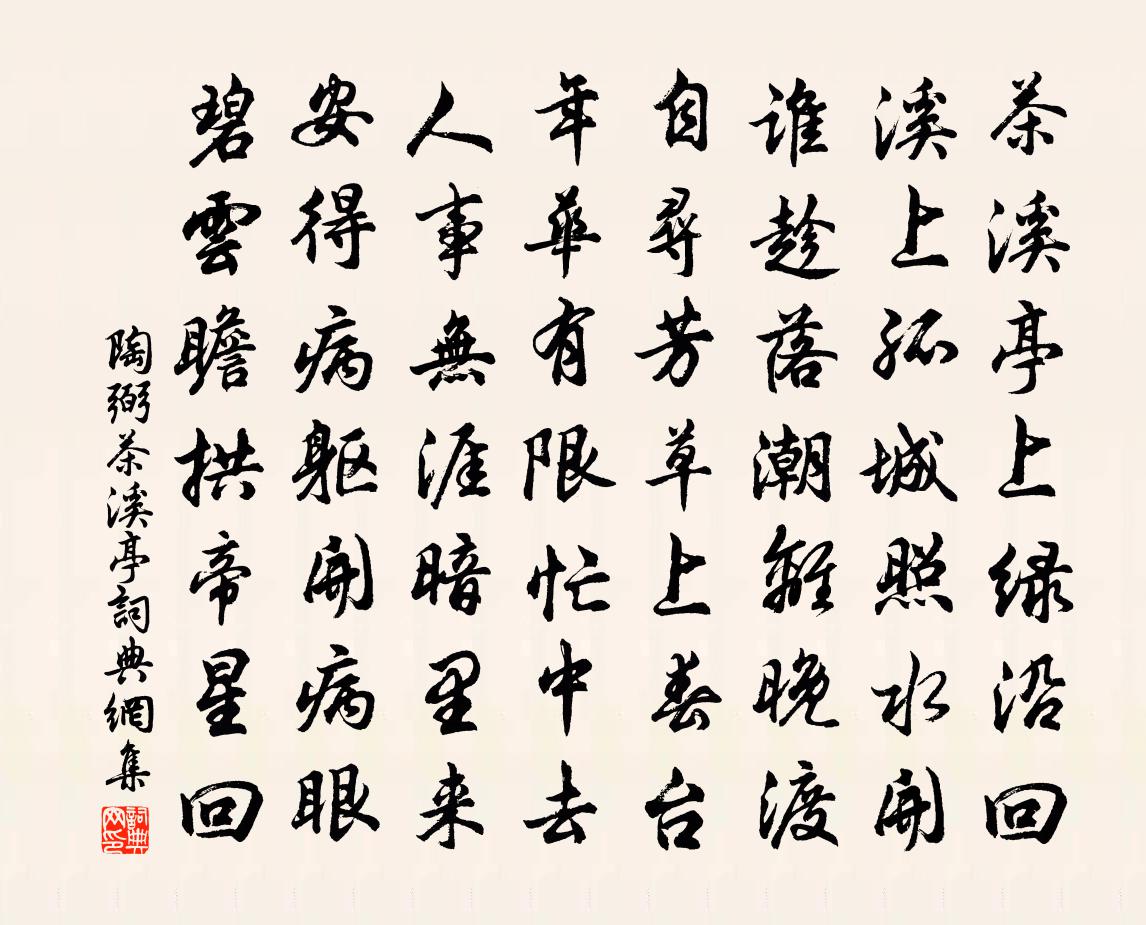 茶溪亭上绿沿回
溪上孤城照水開
谁趁落潮離晚渡
自尋芳草上春台
年華有限忙中去
人事無涯暗里来
安得病軀開病眼
碧雲瞻拱帝星回
陶弼茶溪亭詞典網集
詞典网印